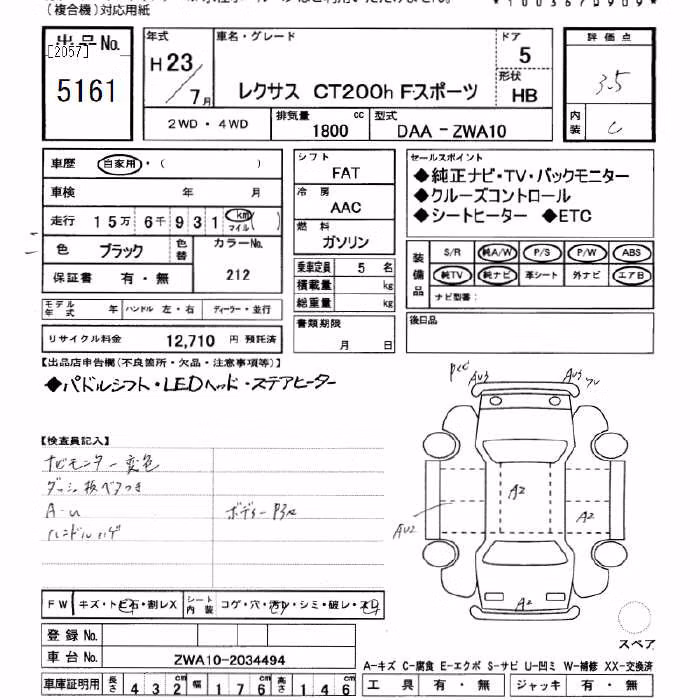 (複合機)対応用紙
出品No.
[2057]
5161
年式
H23/7月
車名・グレード
レクサス CT200h Fスポーツ
ドア
5
形状
HB
評価点
3.5
内装
C
2WD・4WD
排気量 1800 cc
型式 DAA-ZWA10
車歴 自家用・( )
車検 年 月
走行 15万6千931 km マイル( )
色 ブラック 色替 カラーNo. 212
保証書 有・無
モデル年式 年 ハンドル 左・右 ディーラー・並行
リサイクル料金 12,710 円 預託済
シフト
FAT
冷房
AAC
燃料
ガソリン
乗車定員 5 名
積載量 kg
総重量 kg
書類期限
月 日
セールスポイント
◆純正ナビ・TV・バックモニター
◆クルーズコントロール
◆シートヒーター ◆ETC
装備品
S/R 純A/W P/S P/W ABS
純TV 純ナビ 革シート 外ナビ エアB
ナビ型番:
後日品
【出品店申告欄(不良箇所・欠品・注意事項等)】
◆パドルシフト・LEDヘッド・ステアヒーター
【検査員記入】
ナビモニター変色
ダッシュ板ベタつき
A-u
ハンドルハゲ
ボディー
AU3
AU3
AU2
A2
A2
A2
FW キズ・トビ石・割レX
シート内装 コゲ・穴・汚レ・シミ・破レ・スレ
登録No.
車台No. ZWA10-2034494
車庫証明用 長さ 432cm 幅 176cm 高さ 146cm
スペア
A-キズ C-腐食 E-エクボ S-サビ U-凹ミ W-補修 XX-交換済
工具 有・無 ジャッキ 有・無